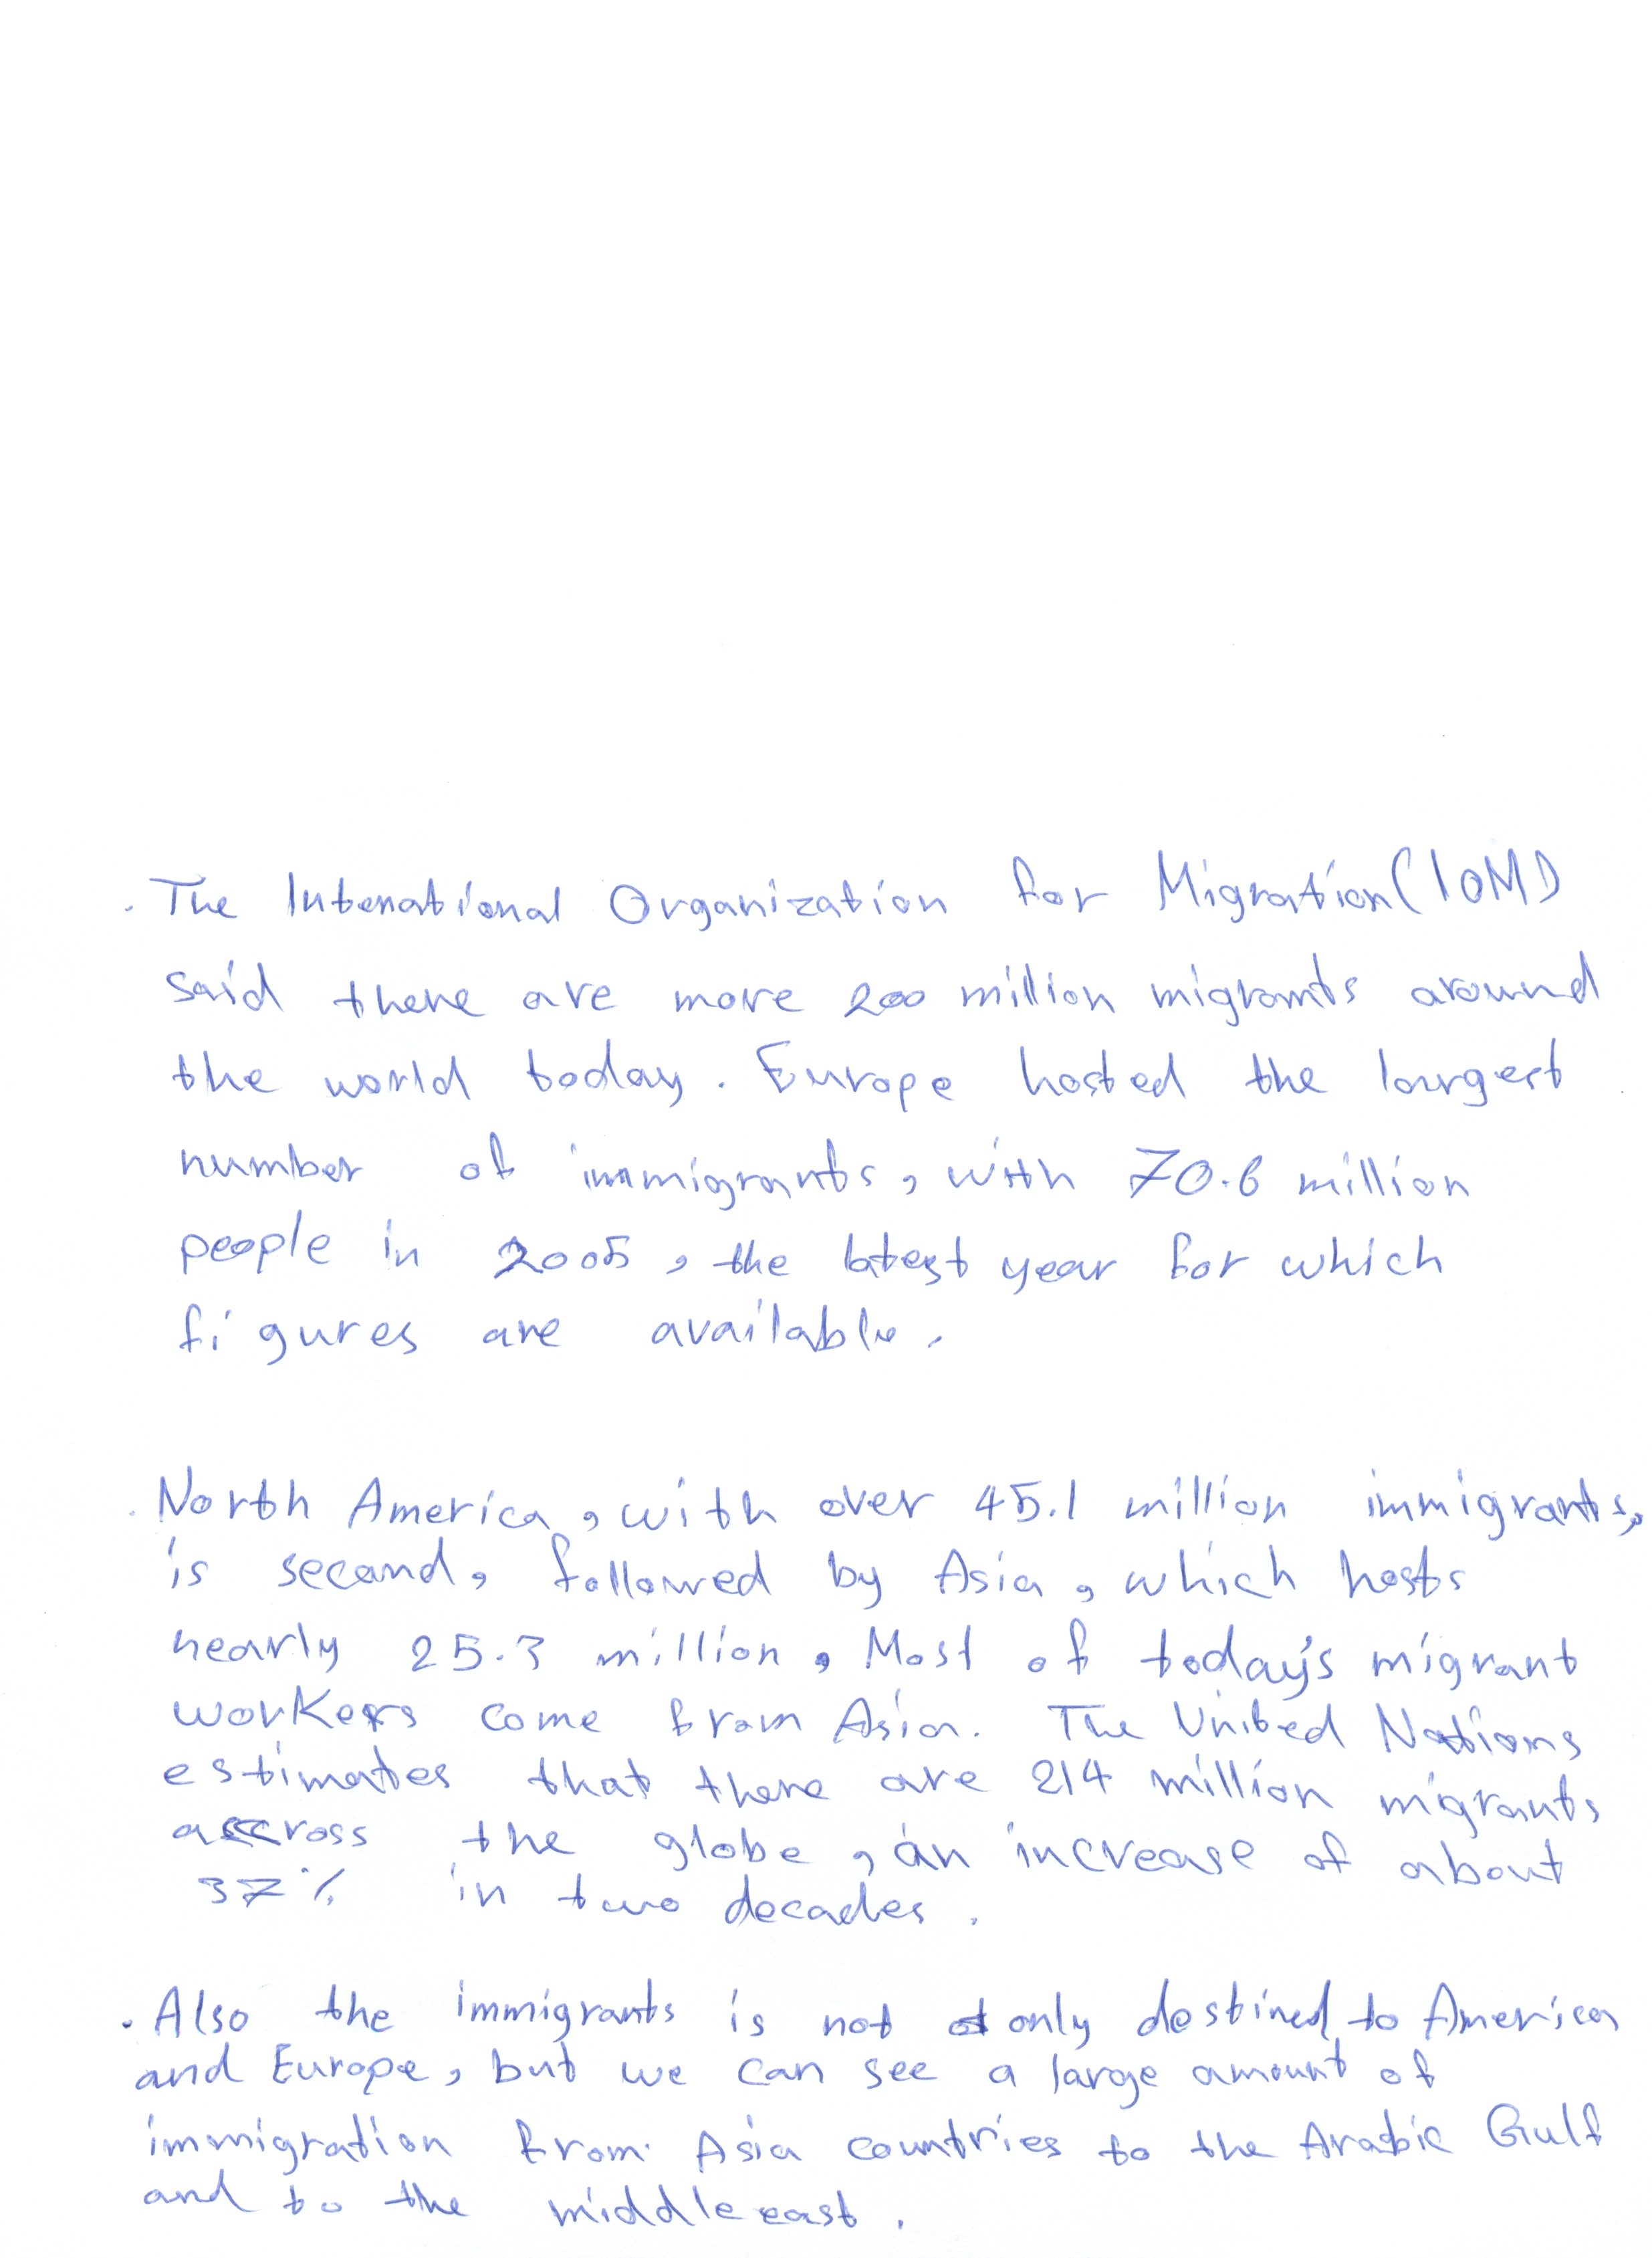 . The International Organization for Migration (IOM)
said there are more 200 million migrants around
the world today. Europe hosted the largest
number of immigrants, with 70.6 million
people in 2005, the latest year for which
figures are available.
. North America, with over 45.1 million immigrants,
is second, followed by Asia, which hosts
nearly 25.3 million, Most of today's migrant
workers come from Asia. The United Nations
estimates that there are 214 million migrants
accross the globe, an increase of about
37% in two decades.
. Also the immigrants is not only destined to America
and Europe, but we can see a large amount of
immigration from Asia countries to the Arabic Gulf
and to the middle east.